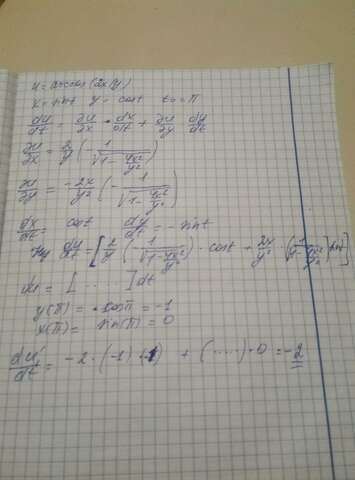 u = arccos(2x/y)
x = sint y = cost t₀ = π
du/dt = ∂u/∂x · dx/dt + ∂u/∂y dy/dt
∂u/∂x = 2/y (- 1/√(1 - 4x²/y²))
∂u/∂y = -2x/y² (- 1/√(1 - 4x²/y²))
dx/dt = cost dy/dt = -sint
du/dt = [2/y (- 1/√(1 - 4x²/y²)) · cost + 2x/y² · (1/√(1 - 4x²/y²)) sint]
du = [.....] dt
y(π) = cosπ = -1
x(π) = sin(π) = 0
du/dt = -2 · (-1) · + (.....) · 0 = -2